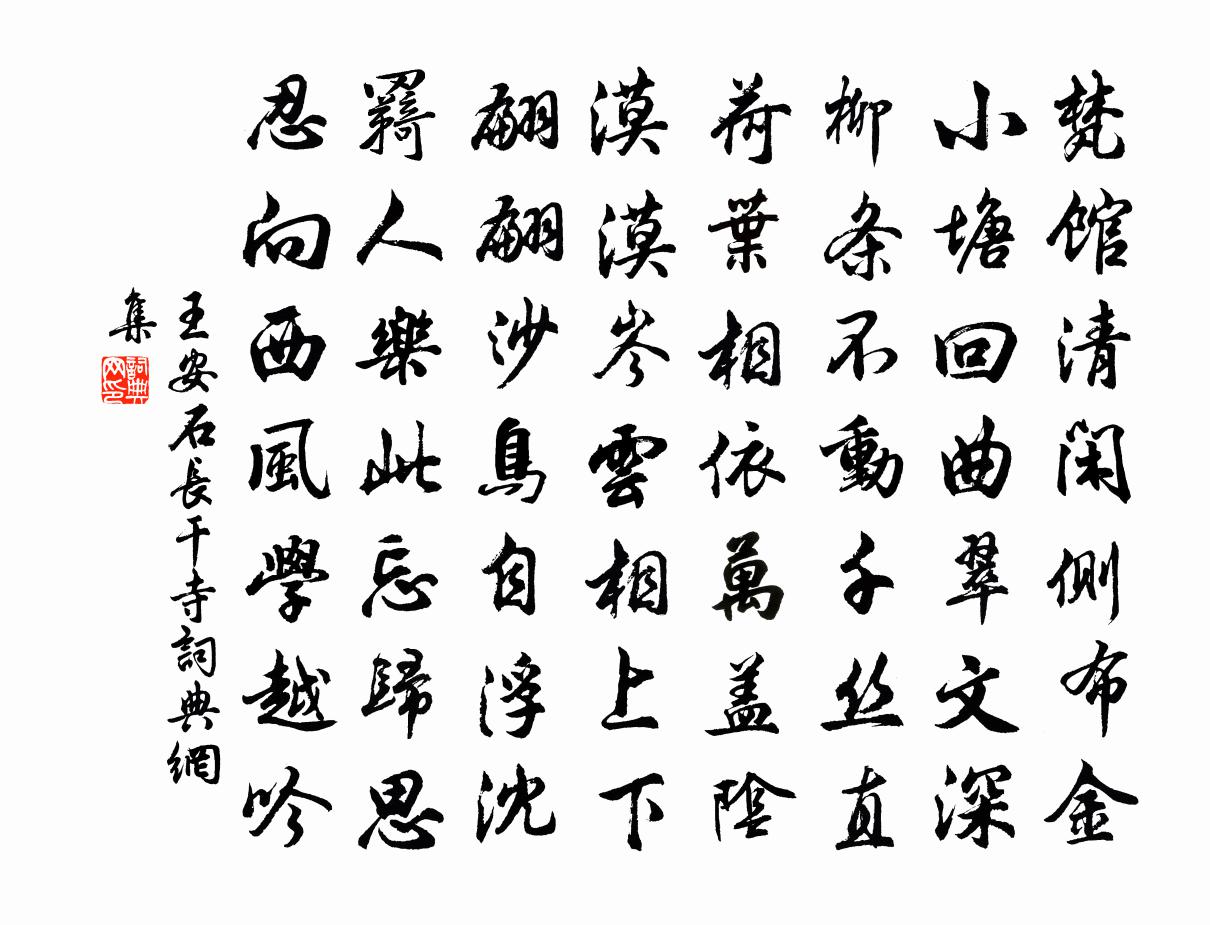 梵馆清闲侧布金
小塘回曲翠文深
柳条不動千丝直
荷葉相依萬盖陰
漠漠岑雲相上下
翩翩沙鳥自浮沈
羇人樂此忘歸思
忍向西風學越吟
王安石長干寺詞典網
集
詞典
网印